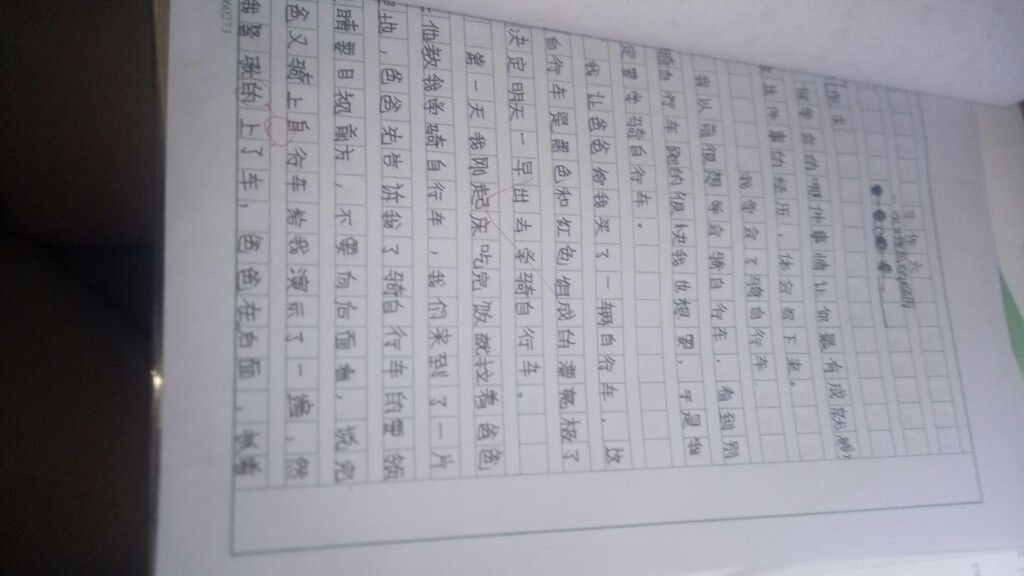 习作六
习作
学会的哪件事情让你最有成就感
这件事的经历,体会写下来。
我学会了骑自行车
我以前很想学会骑自行车,看到别
骑自行车跑的很快我也想要,于是
定要学骑自行车。
我让爸爸给我买了一辆自行车,这
自行车是黑色和红色组成的漂亮极了
决定明天一早出去学骑自行车。
第一天我刚起床吃完饭就拉着爸爸
他教我学骑自行车,我们来到了一片
地,爸爸先告诉我了骑自行车的要领
睛要目视前方,不要向后面看,说完
爸又骑上自行车给我演示了一遍,然
的上了车,爸爸在后面
660273